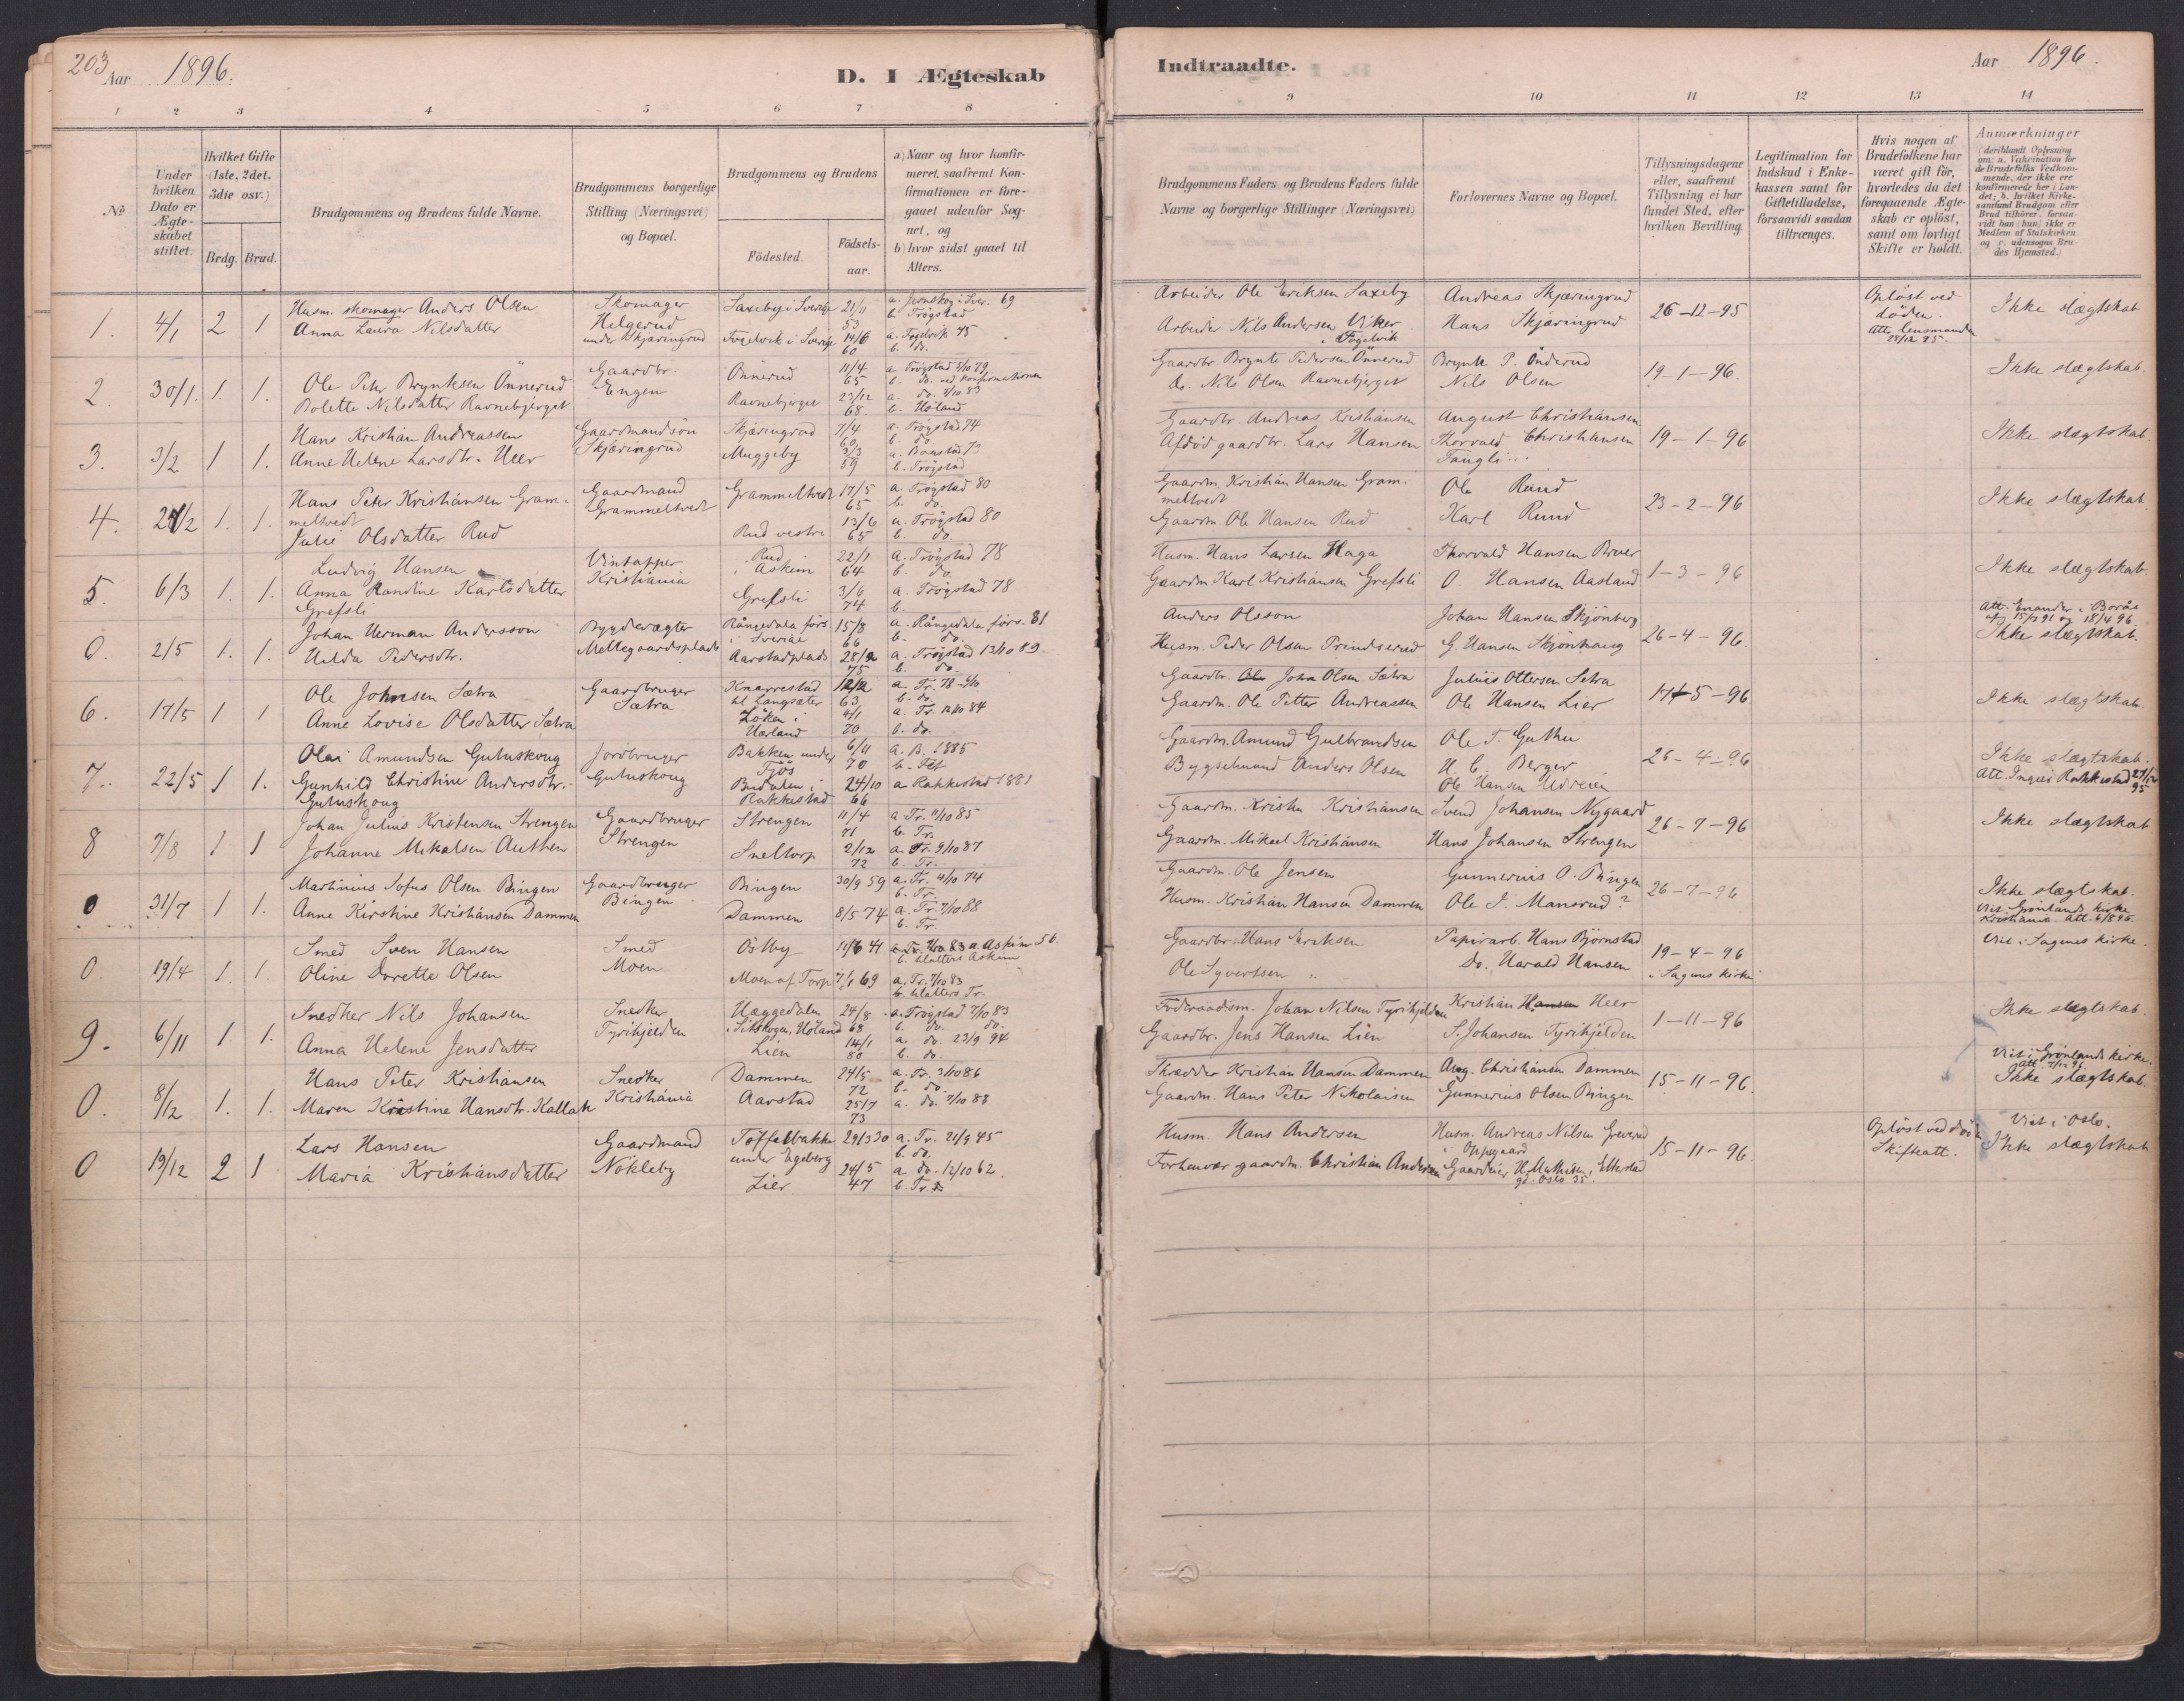 203 Aar 1896.
D. I Ægteskab
Indtraadte.
Aar 1896.
1 2 3 4 5 6 7 8
9 10 11 12 13 14
No
Under hvilken Dato er Ægteskabet stiftet.
Hvilket Gifte (1ste, 2det, 3die osv.)
Brdg. Brud.
Brudgommens og Brudens fulde Navne.
Brudgommens borgerlige Stilling (Næringsvei) og Bopæl.
Brudgommens og Brudens
Födested. Födsels-aar.
a) Naar og hvor konfirmeret, saafremt Konfirmationen er foregaaet udenfor Sognet, og
b) hvor sidst gaaet til Alters.
Brudgommens Faders og Brudens Faders fulde Navne og borgerlige Stillinger (Næringsvei)
Forlovernes Navne og Bopæl.
Tillysningsdagene eller, saafremt Tillysning ei har fundet Sted, efter hvilken Bevilling.
Legitimation for Indskud i Enkekassen samt for Giftetilladelse, forsaavidt saadan tiltrænges.
Hvis nogen af Brudefolkene har været gift för, hvorledes da det foregaaende Ægteskab er oplöst, samt om lovligt Skifte er holdt.
Anmærkninger (deriblandt Oplysning om: a. Vakcination for de Brudefolks Vedkommende, der ikke ere konfirmerede her i Landet; b. hvilket Kirkesamfund Brudgom eller Brud tilhörer, forsaavidt han (hun) ikke er Medlem af Statskirken, og c. udensogns Brudes Hjemsted.)
1. 4/1 2 1
Husm. skomager Anders Olsen
Anna Laura Nilsdatter
Skomager
Helgerud
under Skjæringrud
Saxeby i Sverige 21/11 53
Fogelvik i Sverige 14/6 60
a. Jernskog i Sver. 69
b. Trögstad
a. Fogelvik 45
b. do.
Arbeider Ole Eriksen Saxeby
Arbeider Nils Andersen Viker
i Fogelvik
Andreas Skjæringrud
Hans Skjæringrud
26-12-95
Oplöst ved döden.
Att. lensmanden
28/12 95.
Ikke slægtskab
2. 30/1. 1. 1.
Ole Peter Bryntesen Önnerud
Bolette Nilsdatter Ravnebjerget
Gaardbr.
Engen
Önnerud 11/4 65
Ravnebjerget 23/12 68
a. Trögstad 5/10 79
b. do. ved konfirmationen
a. do. 7/10 83
b. Höland
Gaardbr. Brynte Pedersen Önnerud
do. Nils Olsen Ravnebjerget
Brynte P. Önderud
Nils Olsen
19-1-96.
Ikke slægtskab.
3. 3/2 1 1.
Hans Kristian Andreassen
Anne Helene Larsdtr. Heer
Gaardmandsön
Skjæringrud
Skjæringrud 7/4 60
Muggeby 3/3 59
a. Trögstad 74
b. do.
a. Baastad 73
b. Trögstad
Gaardbr. Andreas Kristiansen
Afdöd gaardbr. Lars Hansen
August Christiansen
Thorvald Christiansen
19-1-96
Ikke slægtskab.
4. 27/2 1. 1.
Hans Peter Kristiansen Gram-
meltvedt
Julie Olsdatter Rud
Gaardmand
Grammeltvedt
Grammeltvedt 17/5 65
Rud vestre 13/6 65
a. Trögstad 80
b. do.
a. Trögstad 80
b. do.
Gaardm. Kristian Hansen Gram-
meltvedt
Gaardm. Ole Hansen Rud
Ole Ruud
Karl Ruud
23-2-96
Ikke slægtskab.
5. 6/3 1. 1.
Ludvig Hansen
Anna Randine Karlsdatter
Grefsli
Vintapper
Kristiania
Rud
i Askim 22/1 64
Grefsli 3/6 74
a. Trögstad 78
b. do.
a. Trögstad 78
b.
Husm. Hans Larsen Haga
Gaardm. Karl Kristiansen Grefsli
Thorvald Hansen Bruer
O. Hansen Aasland
1-3-96
Ikke slægtskab.
0. 2/5 1. 1.
Johan Herman Andersson
Hilda Pedersdtr.
Bygdevægter
Mellegaardsplads
Rångedala förs.
i Sverige 15/8 66
Aarstadplads 28/2 75
a. Rångedala förs. 81
b. do.
a. Trögstad 13/10 89
b. do.
Anders Olsson
Husm. Peder Olsen Prindserud
Johan Hansen Skjönberg
G. Hansen Skjönhaug
26-4-96.
Att. Enander i Borås
af 15/7 91 og 18/4 96.
Ikke slægtskab.
6. 17/5 1 1
Ole Johnsen Sætra
Anne Lovise Olsdatter Sætra
Gaardbruger
Sætra
Knarrestad
til Langsæter 12/2 63
Löken i
Hærland 4/1 70
a. Tr. 78-6/10
b. do.
a. Tr. 12/10 84
b. do.
Gaardbr. John Olsen Sætra
Gaardm. Ole Petter Andreassen
Julius Ottersen Setra
Ole Hansen Lier
17-5-96.
Ikke slægtskab.
7. 22/5 1 1.
Olai Amundsen Gutuskoug
Gunhild Christine Andersdtr.
Gutuskoug
Jordbruger
Gutuskoug
Bakken under
Tjös 6/11 70
Budalen i
Rakkestad 24/10 66
a. B. 1885
b. Fet
a. Rakkestad 1881
Gaardm. Amund Gulbrandsen
Bygselmand Anders Olsen
Ole T. Guthu
H. C. Berger
Ole Hansen
26-4-96
Ikke slægtskab.
Att. Ingier Rakkestad 27/12 95
8 7/8 1 1
Johan Julius Kristensen Strengen
Johanne Mikalsen Authen
Gaardbruger
Strengen
Strengen 11/4 71
Sneltorp 2/12 72
a Tr. 11/10 85
b. Tr.
a. Tr. 9/10 87
b. Tr.
Gaardm. Kristen Kristiansen
Gaardm. Mikael Kristiansen
Svend Johansen Nygaard
Hans Johansen Strengen
26-7-96
Ikke slægtskab
0 31/7 1 1.
Martinius Sofus Olsen Bingen
Anne Kirstine Kristiansen Dammen
Gaardbruger
Bingen
Bingen 30/9 59
Dammen 8/5 74
a. Tr. 4/10 74
b. Tr.
a. Tr. 7/10 88
b. Tr.
Gaardm. Ole Jensen
Husm. Kristian Hansen Dammen
Gunnerius O. Bingen
Ole J. Mansrud?
26-7-96
Ikke slægtskab.
Viet Grönlands kirke
Kristiania. Att. 6/8 96.
0. 19/4 1. 1.
Smed Sven Hansen
Oline Dorette Olsen
Smed
Moen
Östby 11/6 41
Moen af Torp 7/1 69
a. Askim 56.
b. til alters Askim
a. Tr. 7/10 83
b. til alters Tr.
Gaardbr. Hans Eriksen
Ole Syvertsen "
Papirarb. Hans Björnstad
Do. Harald Hansen
19-4-96
i Sagenes kirke
Viet i Sagenes kirke.
9. 6/11 1 1.
Snedker Nils Johansen
Anna Helene Jensdatter
Snedker
Tyrihjelden
Hæggedalen
i Setskogen, Höland 24/8 68
Lien 14/1 80
a. Trögstad 7/10 83
b. do. do.
a. do. 23/9 94
b. do.
Föderaadsm. Johan Nilsen Tyrihjelden
Gaardbr. Jens Hansen Lien
Kristian Hansen Heer
S. Johansen Tyrihjelden
1-11-96
Ikke slægtskab.
0. 8/12 1. 1.
Hans Peter Kristiansen
Maren Kristine Hansdtr. Kallak
Snedker
Kristiania
Dammen 24/5 72
Aarstad 25/7 73
a. Tr. 3/10 86
b. do.
a. do. 7/10 88
Skrædder Kristian Hansen Dammen
Gaardm. Hans Peter Nikolaisen
Aug. Christiansen Dammen
Gunnerius Olsen Bingen
15-11-96.
Viet i Grönlands kirke.
Ikke slægtskab.
0 19/12 2 1
Lars Hansen
Maria Kristiansdatter
Gaardmand
Nökleby
Töffelbakke
under Egeberg 29/3 30
Lier 24/5 47
a. Tr. 21/9 45
b. do.
a do. 12/10 62.
b. Tr.
Husm. Hans Andersen
Forhenvær. gaardm. Christian Andersen
Husm. Andreas Nilsen Greverud
i Oppegaard
Gaardeier H. Mathisen, Etterstad
gd. Oslo 35
15-11-96.
Oplöst ved död
Skifteatt.
Viet i Oslo.
Ikke slægtskab